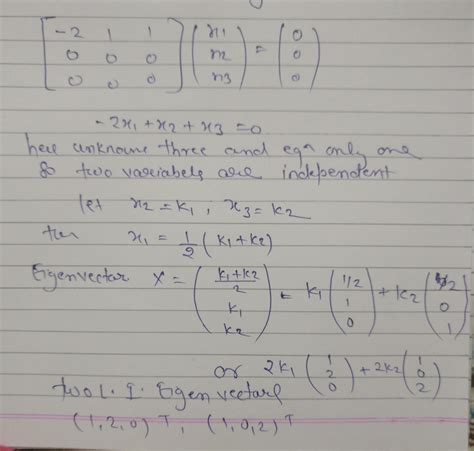 [-2 1 1; 0 0 0; 0 0 0] (x1; x2; x3) = (0; 0; 0)
-2x1 + x2 + x3 = 0
here unknowns three and eqn only one
So two variabels are independent
let x2 = k1, x3 = k2
then x1 = 1/2 (k1 + k2)
Eigenvector X = ((k1+k2)/2; k1; k2) = k1 (1/2; 1; 0) + k2 (1/2; 0; 1)
or 2k1 (1; 2; 0) + 2k2 (1; 0; 2)
two L.I. Eigen vectors
(1, 2, 0)^T, (1, 0, 2)^T